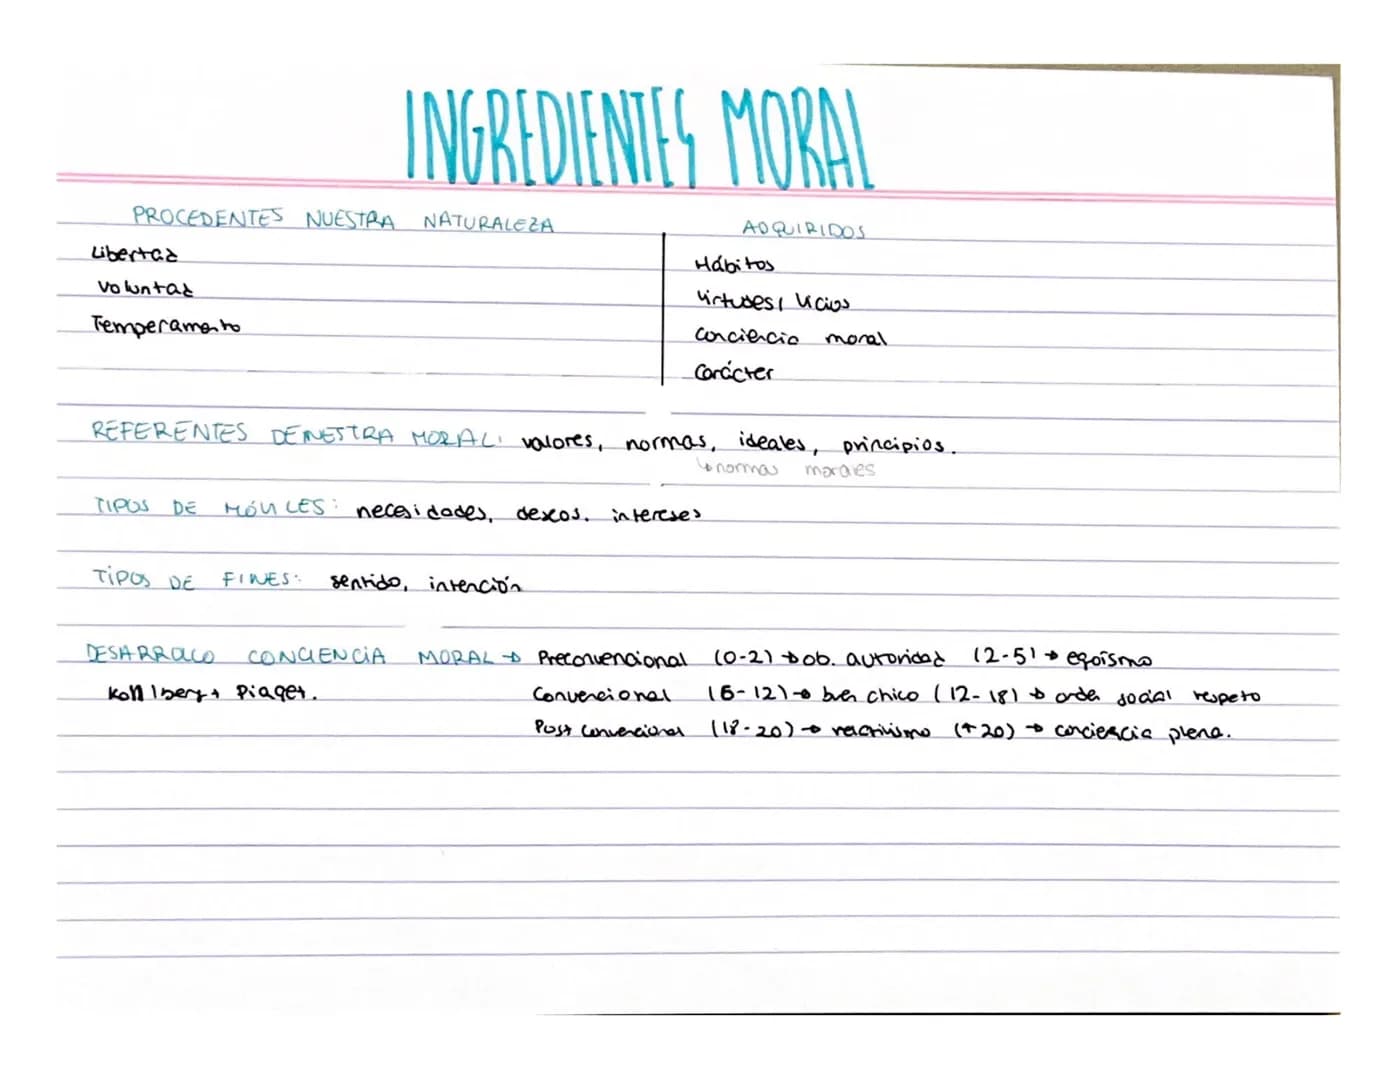 INGREDIENTES MORAL
PROCEDENTES NUESTRA NATURALEZA
Libertad
Voluntad
Temperamento
ADQUIRIDOS
Hábitos
Virtudes, Vicios
Conciencia moral
Carácter
REFERENTES DE NESTRA MORAL: valores, normas, ideales, principios.
↳ normas morales
TIPOS DE MÓVILES: necesidades, deseos, intereses
TIPOS DE FINES: sentido, intención
DESARROLLO CONCIENCIA MORAL → Preconvencional (0-2) → ob. autoridad (2-5) → egoísmo
Kohlberg + Piaget. Convencional (6-12) → buen chico (12-18) → orden social respeto
Post convencional (18-20) → (+20) → conciencia plena.